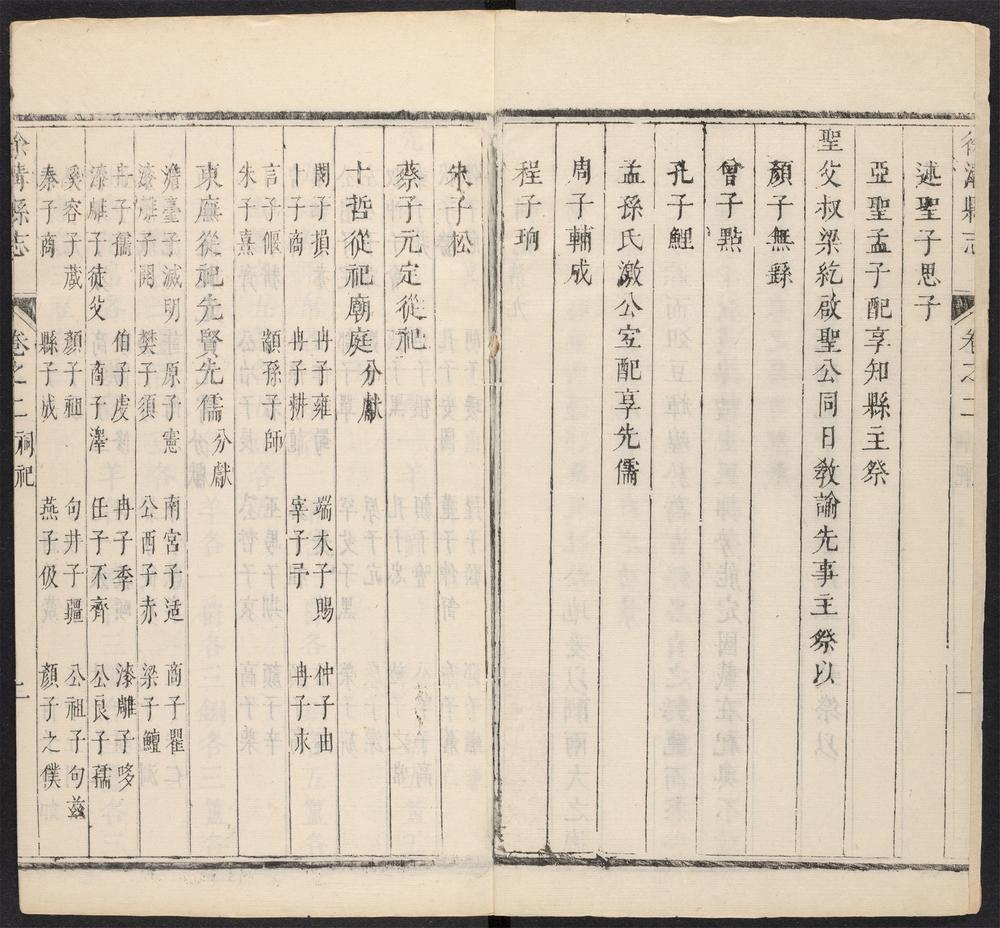 徐溝縣志
卷之二
述聖子思子
亞聖孟子配享知縣主祭
聖父叔梁紇啟聖公同日敎諭先事主祭以
顏子無繇
曾子點
孔子鯉
孟孫氏激公宜配享先儒
周子輔成
程子珦
朱子松
蔡子元定從祀
十哲從祀廟庭分獻
閔子損 冉子雍 端木子賜 仲子由
卜子商 冉子耕 宰子予 冉子求
言子偃 顓孫子師
朱子熹
東廡從祀先賢先儒分獻
澹臺子滅明 原子憲 南宮子适 商子瞿
漆雕子開 樊子須 公西子赤 梁子鱣
冉子孺 伯子虔 冉子季 漆雕子哆
漆雕子徒父 商子澤 任子不齊 公良子孺
奚容子蒧 顏子祖 句井子疆 公祖子句茲
秦子商 縣子成 燕子伋 顏子之僕
徐溝縣志
卷之二
祠祀